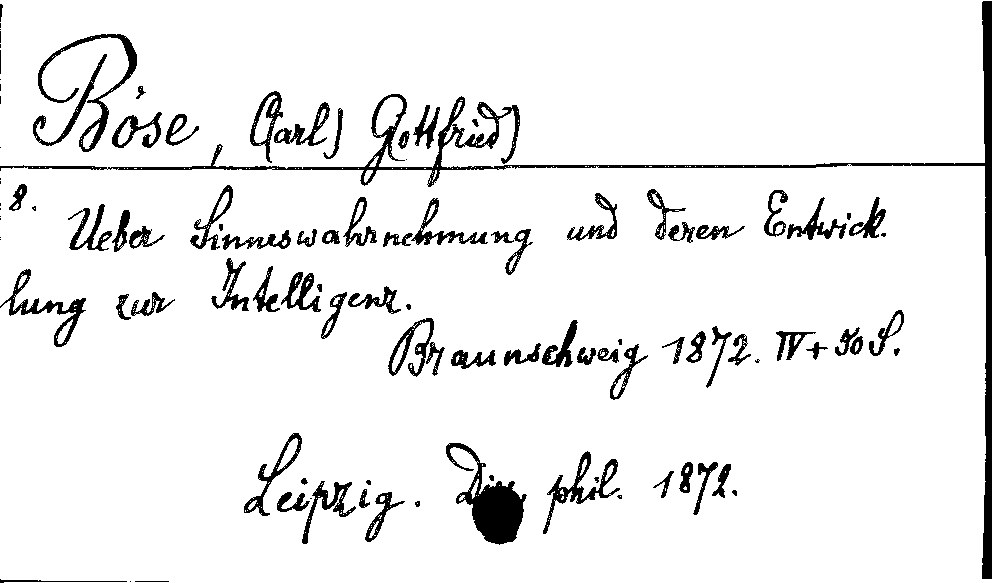 Böse, C(arl) Gottfried)
8.
Ueber Sinneswahrnehmung und deren Entwick.
lung zur Intelligenz.
Braunschweig 1872. IV + 50 S.
Leipzig. phil. 1872.